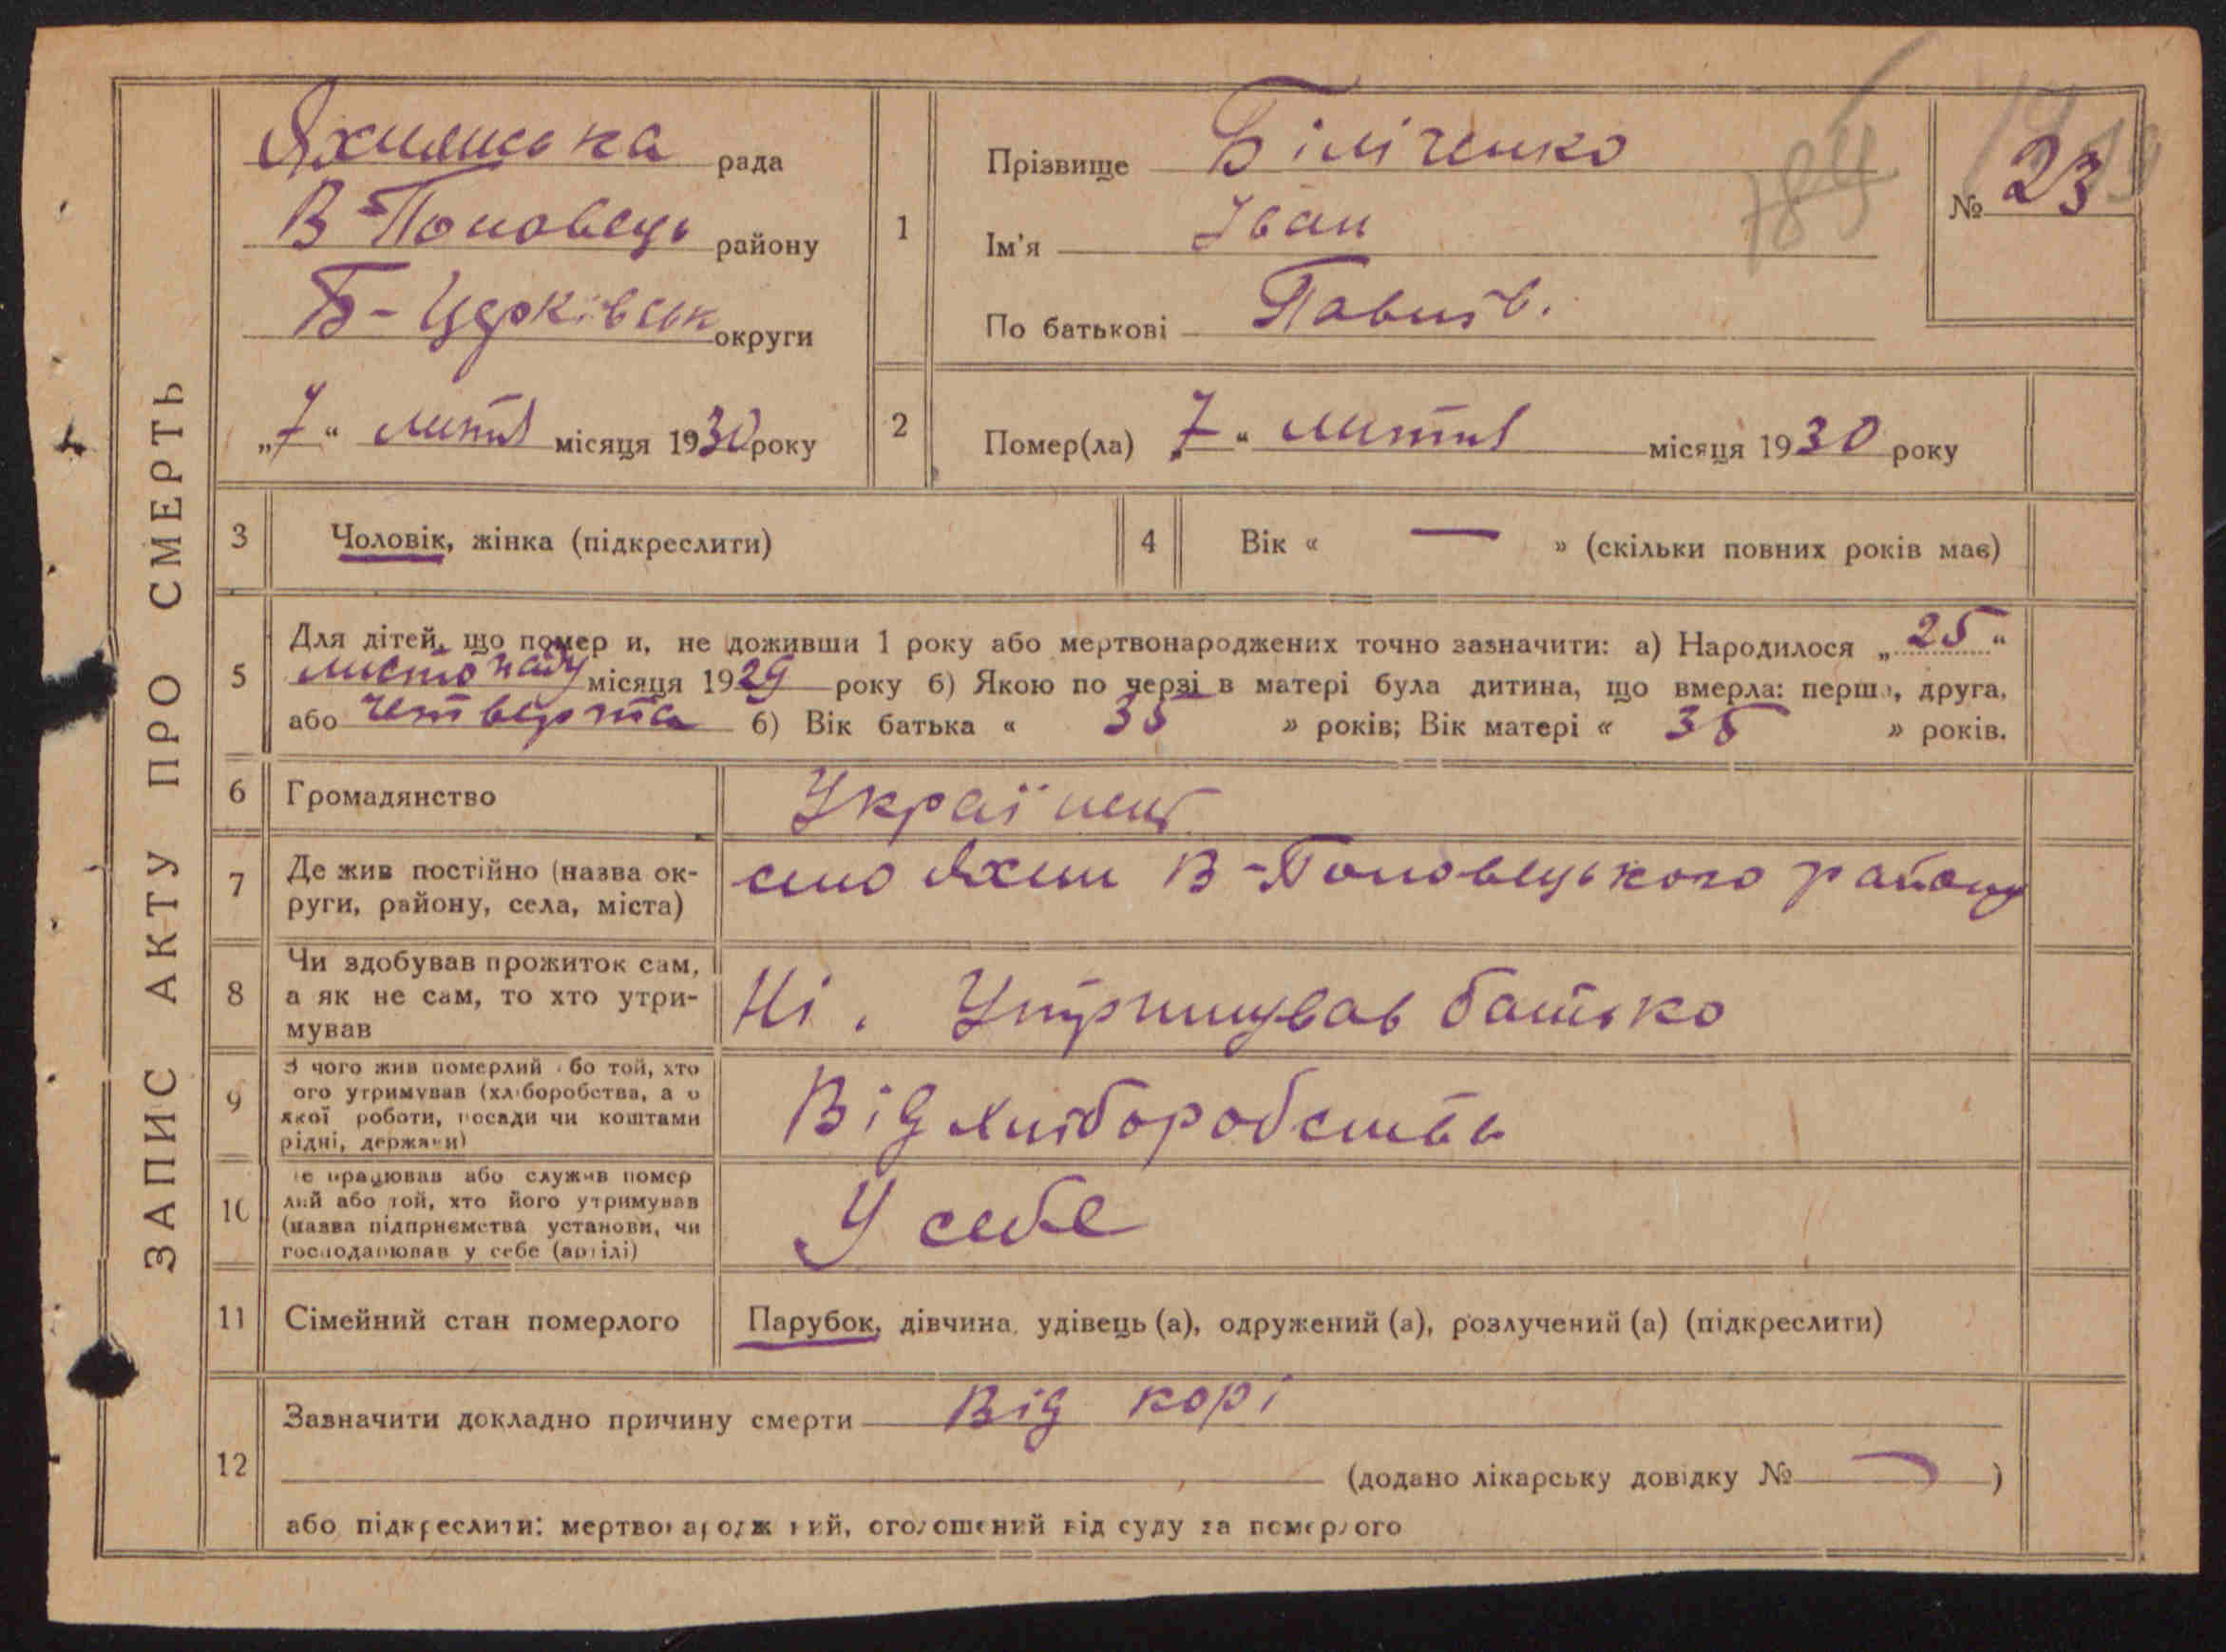 ЗАПИС АКТУ ПРО СМЕРТЬ
Яхнянська рада
В-Половець району
Б-Церківськ округи
„7“ лютня місяця 1930 року
1
Прізвище Біліченко
Ім'я Іван
По батькові Павлів.
№ 23
784
2
Помер(ла) 7 “ лютня місяця 1930 року
3 Чоловік, жінка (підкреслити)
4 Вік « — » (скільки повних років має)
5 Для дітей, що помер и, не доживши 1 року або мертвонароджених точно зазначити: а) Народилося „ 25 “
листопаду місяця 1929 року б) Якою по черзі в матері була дитина, що вмерла: перш , друга,
або четверта б) Вік батька « 35 » років; Вік матері « 35 » років.
6 Громадянство Українець
7 Де жив постійно (назва ок-
руги, району, села, міста)
село Яхни В-Половецького району
8 Чи здобував прожиток сам,
а як не сам, то хто утри-
мував
Ні. Утримував батько
9 З чого жив померлий бо той, хто
ого утримував (хліборобства, а о
якої роботи, посади чи коштами
рідні, держави)
Від хліборобства
10 е працював або служив помер
лий або той, хто його утримував
(назва підприємства установи, чи
господарював у себе (артілі)
У себе
11 Сімейний стан померлого Парубок, дівчина, удівець (а), одружений (а), розлучений (а) (підкреслити)
12 Зазначити докладно причину смерти Від корі
(додано лікарську довідку № — )
або підкреслити: мертвонародж ний, оголошений від суду за померлого